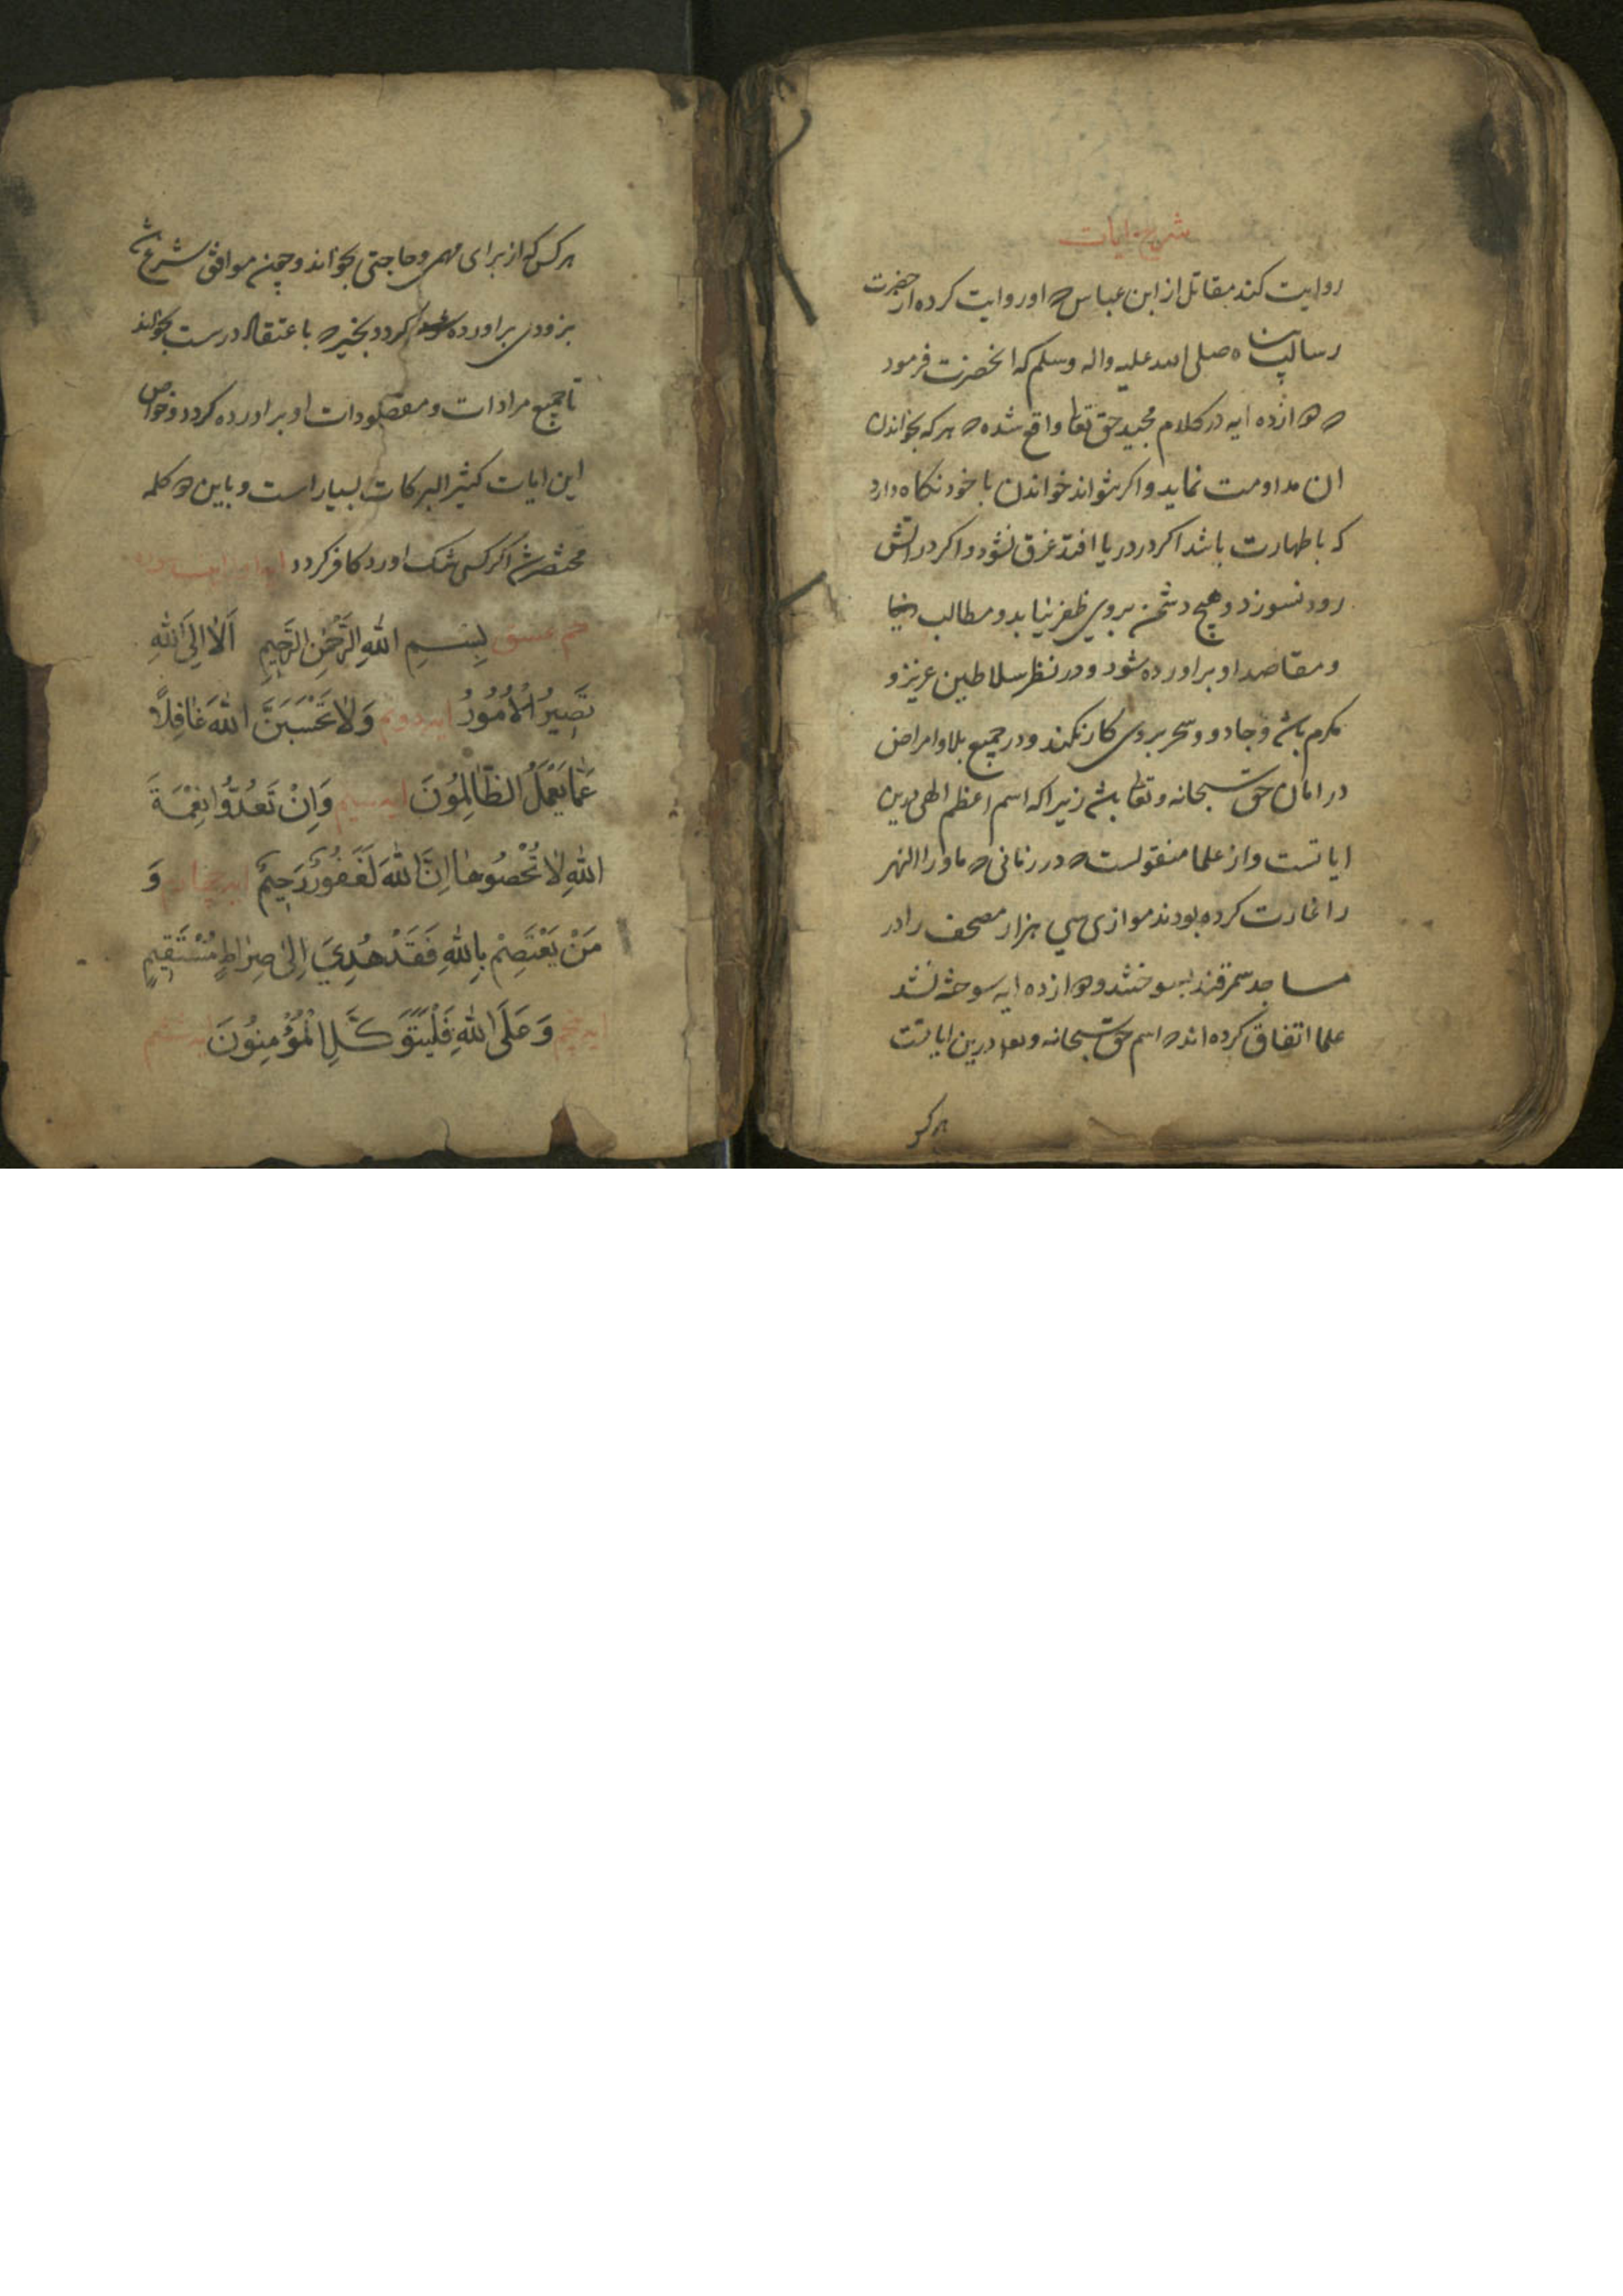 شرح ایات
روایت کند مقاتل از ابن عباس که او روایت کرده از حضرت
رسالت پناه صلی الله علیه واله وسلم که انحضرت فرمود
که دوازده ایه در کلام مجید حق تعا واقع شده که هر که بخواندن
ان مداومت نماید و اکر نتواند خواندن با خود نکاه دارد
که با طهارت باشد اکر در دریا افتد غرق نشود و اکر در اتش
رود نسوزد و هیچ دشمن بروی ظفر نیابد و مطالب
و مقاصد او براورده شود و در نظر سلاطین عزیز و
مکرم باشد و جادو و سحر بروی کار نکند و در جمیع بلا و امراض
در امان حق سبحانه و تعا باشد زیرا که اسم اعظم الهی درین
ایاتست و از علما منقولست که در زمانی که ماورا النهر
را غارت کرده بودند موازی سی هزار مصحف را در
مساجد سمرقند بسوختند و دوازده ایه سوخته نشد
علما اتفاق کرده اند که اسم حق سبحانه وتعا درین ایاتست
هر کس
هر کس که از برای مهمی و حاجتی بخواند و چون موافق شرع باشد
بزودی براورده کردد بخیر که با عتقاد درست بخواند
تا جمیع مرادات و مقصودات او براورده کردد و خواص
این ایات کثیر البرکات بسیار است و باین دو کلمه
مختصر شد اکر کسی شک اورد کافر کردد
حم عسق بِسْمِ اللهِ الرَّحْمٰنِ الرَّحِیمِ اَلَا اِلَی اللهِ
تَصِیرُ الْاُمُورُ ایه دویم وَلَا تَحْسَبَنَّ اللهَ غَافِلًا
عَمَّا یَعْمَلُ الظَّالِمُونَ ایه سیم وَاِنْ تَعُدُّوا نِعْمَةَ
اللهِ لَا تُحْصُوهَا اِنَّ اللهَ لَغَفُورٌ رَحِیمٌ ایه چهارم وَ
مَنْ یَعْتَصِمْ بِاللهِ فَقَدْ هُدِیَ اِلیٰ صِرَاطٍ مُسْتَقِیمٍ
ایه پنجم وَعَلَی اللهِ فَلْیَتَوَکَّلِ الْمُؤْمِنُونَ ایه ششم